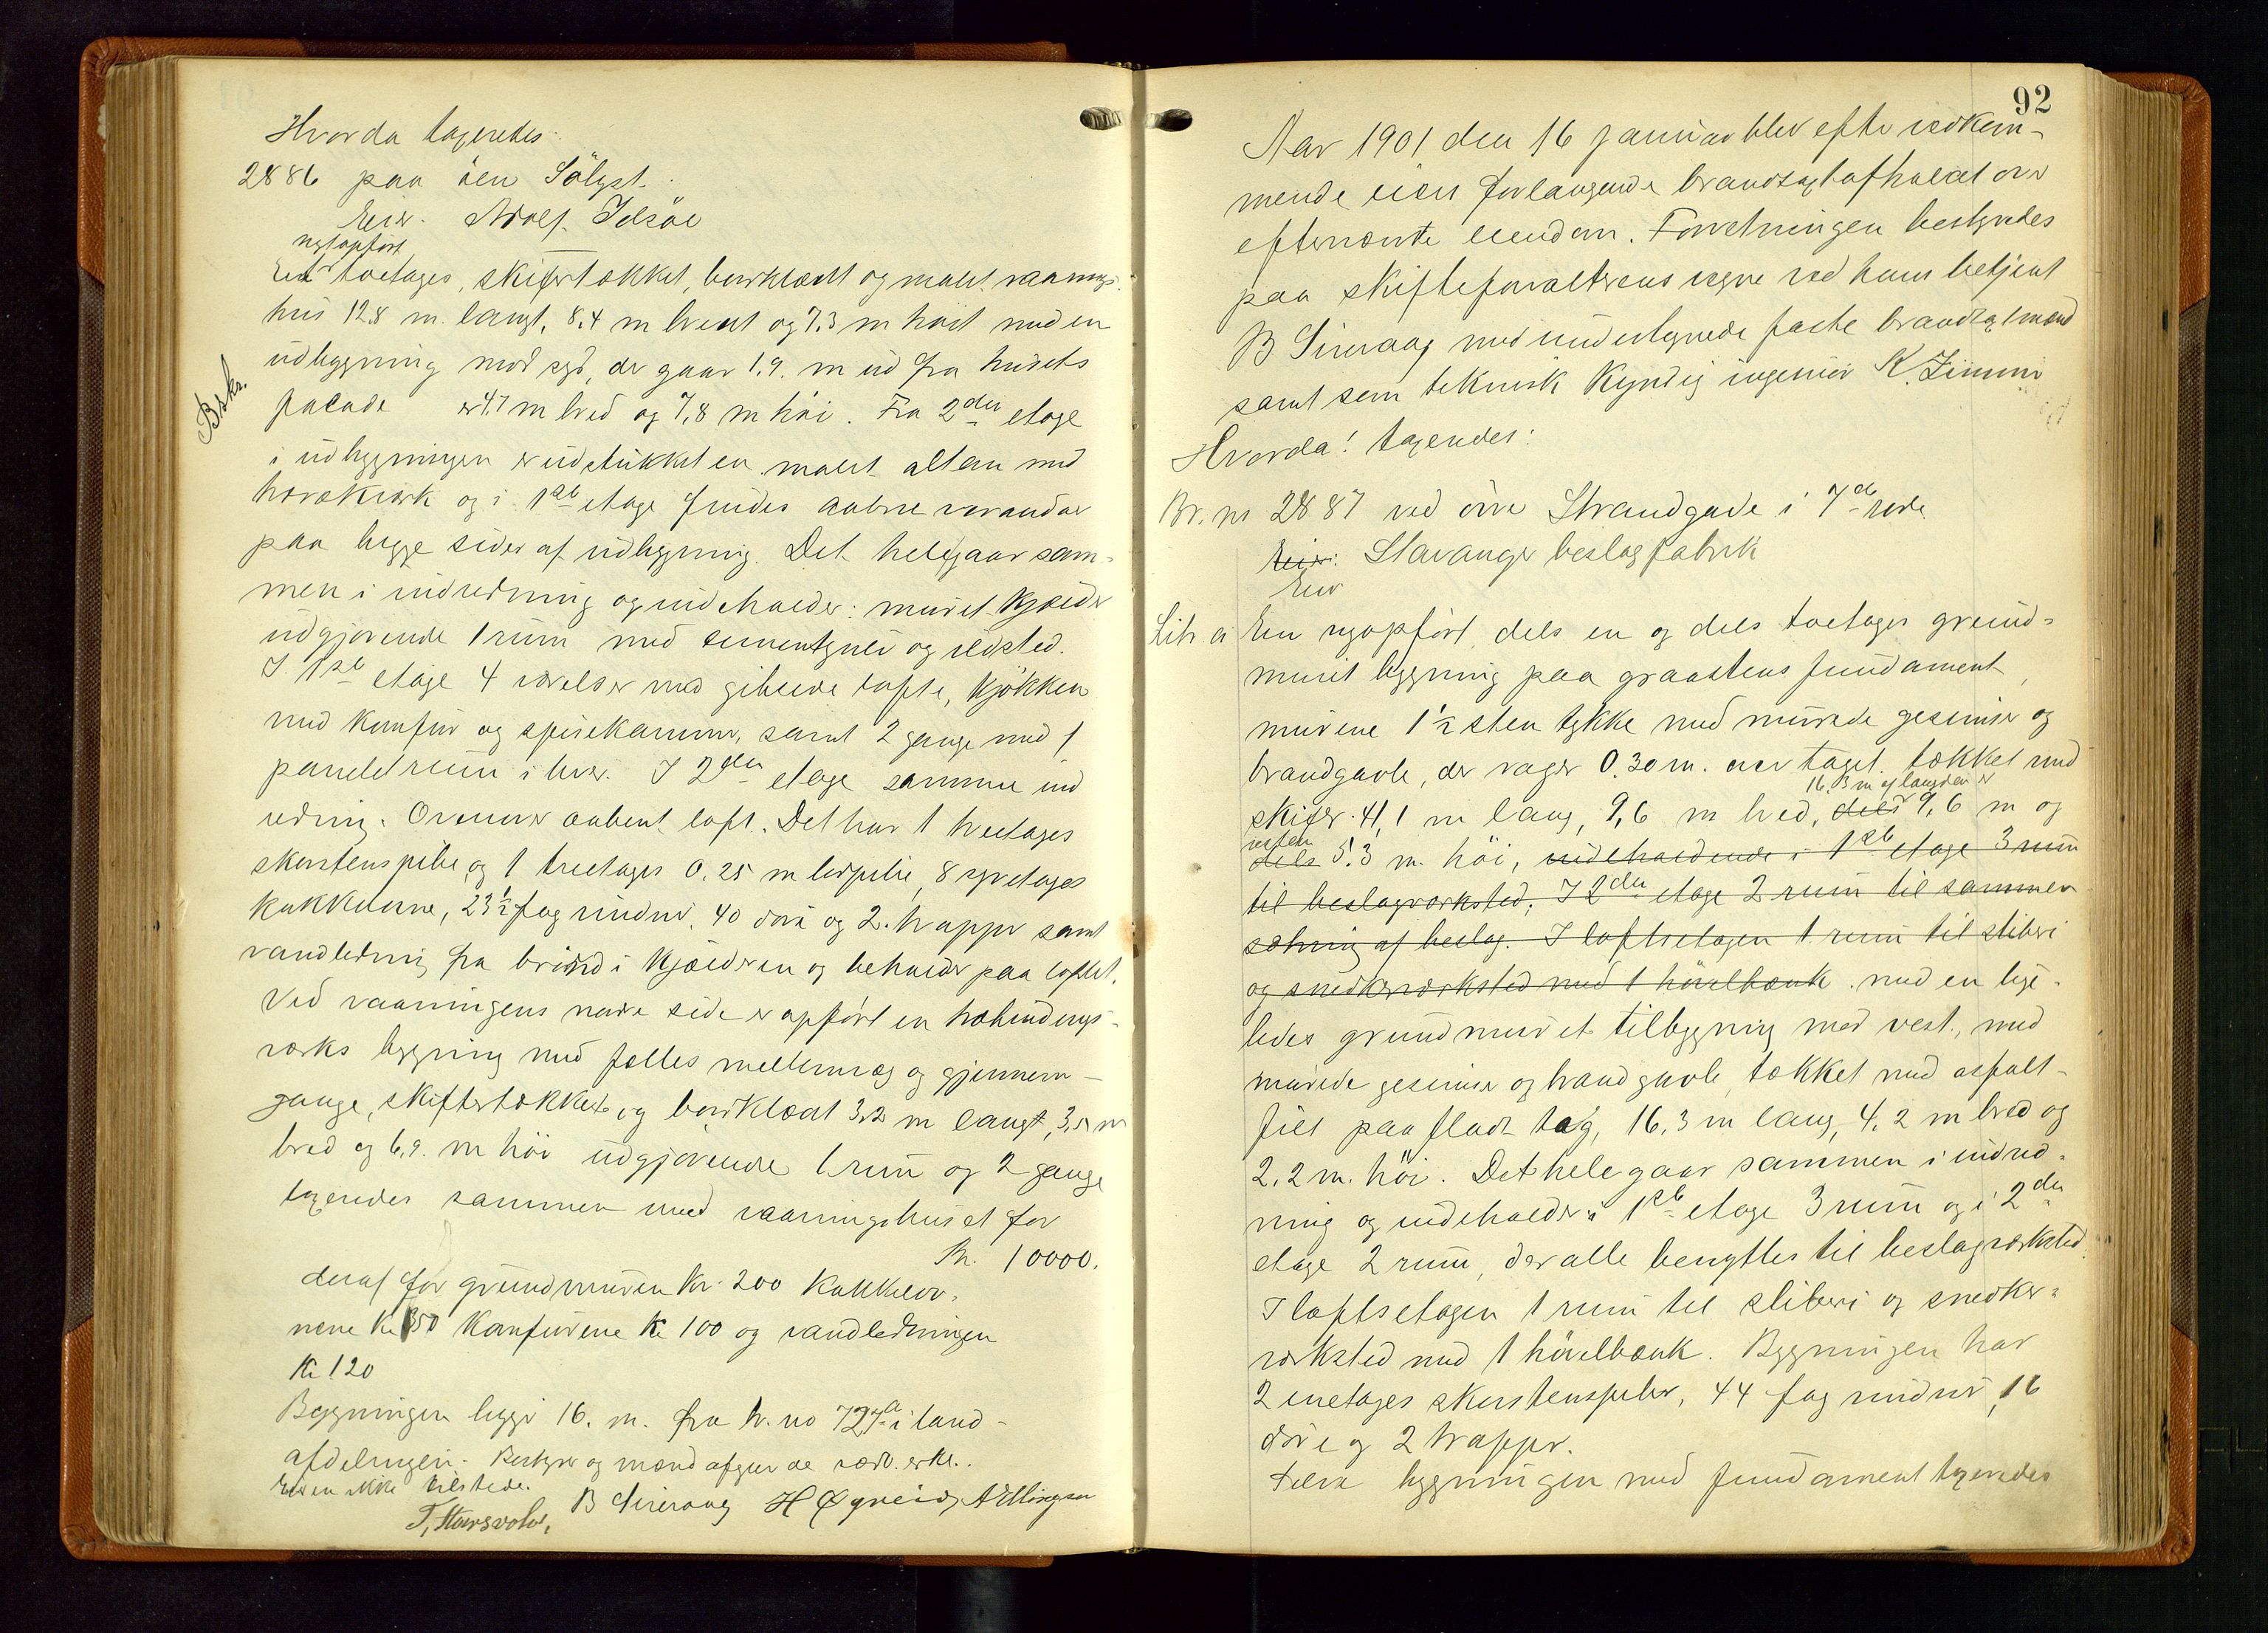 Hvorda taxeredes:
2886 paa öen Sölyst.
Eier. Adolf Idsöe
nyopfört
Et toetages, skifertækket, bordklædt og malet vaanings-
hus 12.8 m. langt, 8,4 m bredt og 7.3 m höit med en
udbygning mod syd, der gaar 1.9. m ud fra husets
facade er 4,7 m bred og 7,8 m höi. Fra 2den etage
i udbygningen er udstukket en malet altan med
trærækværk og i 1ste etage findes aabne verandaer
paa begge sider af udbygning. Det hele gaar sam-
men i indredning og indeholder: muret kjælder
udgjörende 1 rum med cementgulv og ildsted.
I 1ste etage 4 værelser med gibsede lofte, kjökken
med komfur og spisekammer, samt 2 gange med 1
panelet rum i hver. I 2den etage samme ind
redning. Ovenover aabent loft. Det har 1 treetages
skorstenspibe og 1 treetages 0.25 m lerpibe, 8 syvetages
kakkelovne, 23½ fag vinduer, 40 döre og 2. trapper samt
vandledning fra brönd i kjælderen og beholder paa loftet.
Ved vaaningens nordre side er opfört en trebindings-
værks bygning med fælles mellemvæg og gjennem-
gange, skiftertækket og bordklædt 3,2 m langt, 3,5 m
bred og 6,9. m höi udgjörende 1 rum og 2 gange
taxeredes sammen med vaaningshuset for
Kr. 10000.
deraf for grundmuren Kr 200 kakkelov-
nene Kr 350 Komfurene Kr 100 og vandledningen
Kr 120
Bygningen ligger 16. m. fra br. no 727a i land-
afdelingen. Bestyrer og mænd afgav ed. værd. erkl..
Eieren ikke tilstede.
B Sireraag H Øgreid, A Ellingsen
T, Haarsvolv,
Bskr.
92
Aar 1901 den 16 januar blev efter vedkom-
mende eiers forlangende brandtaxt afholdt over
efternævnte eiendom. Forretningen bestyredes
paa skifteforvalterens vegne ved hans betjent
B Sireraag med undertegnede faste brandtaxtmænd
samt som teknisk kyndig ingeniör K. Zimmer
Hvorda! taxeredes:
Br. no 2887 ved övre Strandgade i 7de rode
Eier: Stavanger beslagfabrik
Eier
Litr a En nyopfört, dels en og dels toetages grund-
muret bygning paa graastens fundament,
murene 1½ sten tykke med murede gesimser og
brandgavle, der rager 0.30 m. over taget, tækket med
16.3 m af længden er
skifer. 41,1 m lang, 9,6 m bred, dels 9,6 m og
resten
dels 5.3 m. höi, indeholdende i 1ste etage 3 rum
til beslagværksted; I 2den etage 2 rum til sammen
sætning af beslag. I loftsetagen 1 rum til sliberi
og snedkerværksted med 1 hövelbænk. med en lige-
ledes grundmuret tilbygning mod vest, med
murede gesimser og brandgavle, tækket med asfalt-
filt paa fladt tag, 16.3 m lang, 4.2 m bred og
2,2 m. höi. Det hele gaar sammen i indred-
ning og indeholder i 1ste etage 3 rum og i 2den
etage 2 rum, der alle benyttes til beslagværksted
I loftsetagen 1 rum til sliberi og snedker-
værksted med 1 hövelbænk. Bygningen har
2 enetages skorstenspiber, 44 fag vinduer, 16
döre og 2 trapper.
bygningen med fundament taxeredes